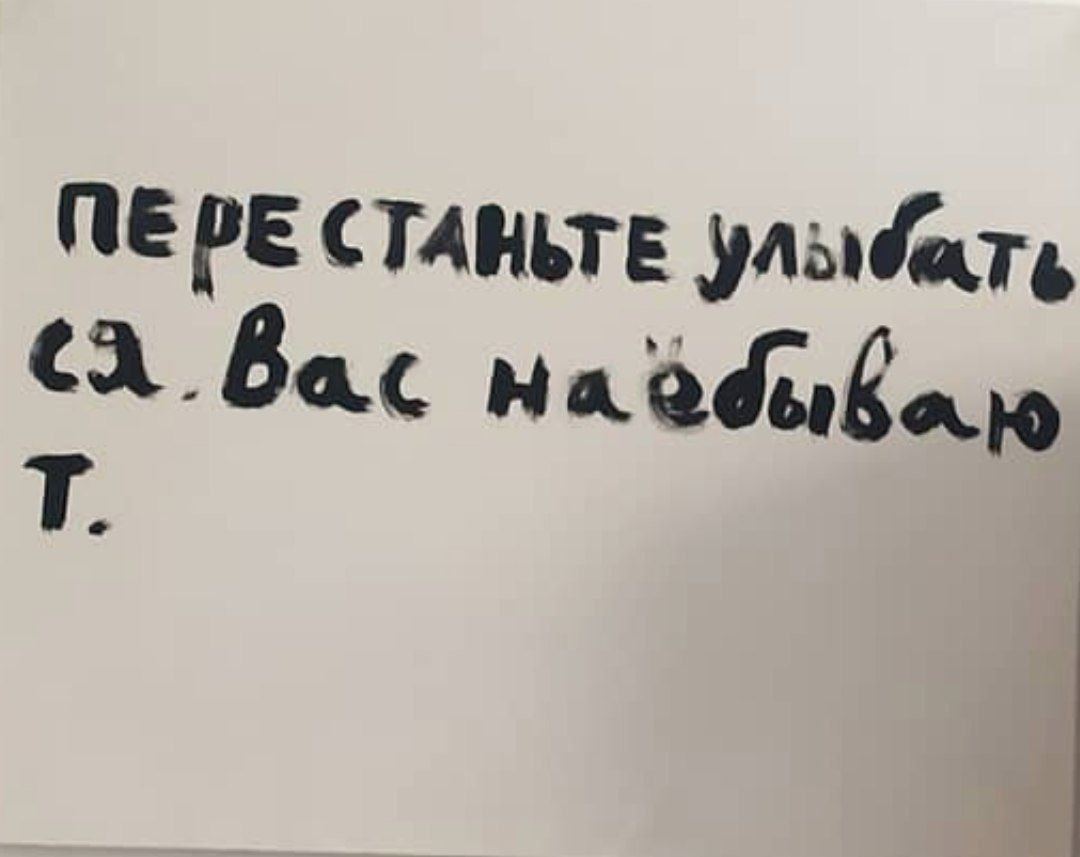 ПЕРЕСТАНЬТЕ улыбать
ся. Вас наёбываю
Т.